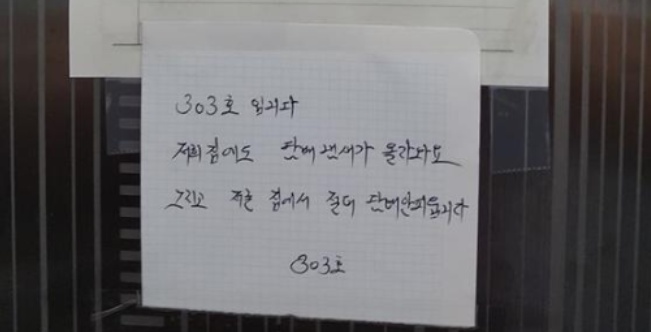 303호 입니다
저희 집에도 담배 냄새가 올라와요
그리고 저흰 집에서 절대 담배안피웁니다
303호